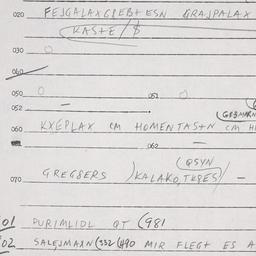 020 FEJGALAXGREBTESN GRAJPALAX
(KASTE/$
030
040
050
051
052 —
060 KXEPLAX CM HOMENTASTN CM
062 —
(QSYN
070 GREGBERS )KALAKO,TKBES/ —
01 PURIMLIDL QT (981
02 SALEJMAXN(332 (490 MIR FLEGT ES A